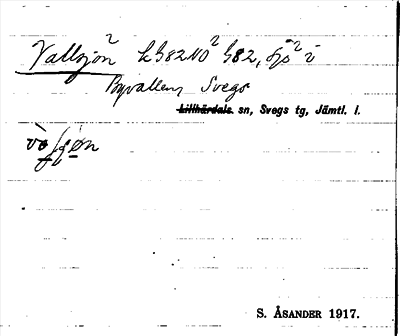 Vallsjön² k G82 NO² G82, sjö² i
Byvallen, Svegs
Lillhärdals sn, Svegs tg, Jämtl. l.
S. ÅSANDER 1917.